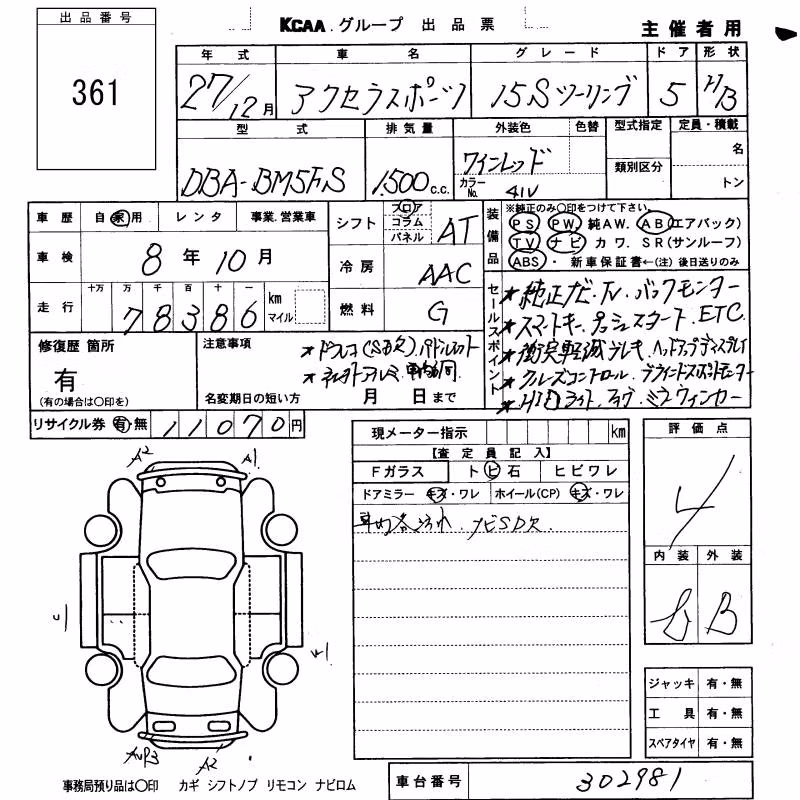 出品番号
361
KCAA グループ 出品票
主催者用
年式 車名 グレード ドア 形状
27/12月 アクセラスポーツ 15Sツーリング 5 H/B
型式 排気量 外装色 色替 型式指定 定員・積載
DBA-BM5FS 1,500 c.c. ワインレッド カラーNo. 41V 類別区分 名 トン
車歴 自家用 レンタ 事業.営業車
車検 8年10月
走行 十万 万 千 百 十 一 km マイル
78386
シフト フロア コラム パネル AT
冷房 AAC
燃料 G
装備品 ※純正のみ〇印をつけて下さい。
PS PW 純AW. AB(エアバック)
TV ナビ カワ. SR(サンルーフ)
ABS ・ 新車保証書←(注) 後日送りのみ
セールスポイント
★純正ナビ・TV バックモニター
★スマートキー プッシュスタート ETC
★衝突軽減ブレーキ ヘッドアップディスプレイ
★クルーズコントロール ブラインドスポットモニター
★HIDライト フォグ ミラーウィンカー
修復歴 箇所
有
(有の場合は〇印を)
注意事項
★ドラレコ(SD欠) パドルシフト
名変期日の短い方 月 日まで
リサイクル券 有 無 11070円
現メーター指示 km
【査定員記入】
Fガラス トビ石 ヒビワレ
ドアミラー キズ・ワレ ホイール(CP) キズ・ワレ
車内各汚れ. ナビSD欠
評価点
4
内装 外装
B
A2 A1
A2
ジャッキ 有・無
工具 有・無
スペアタイヤ 有・無
事務局預り品は〇印 カギ シフトノブ リモコン ナビロム
車台番号 302981